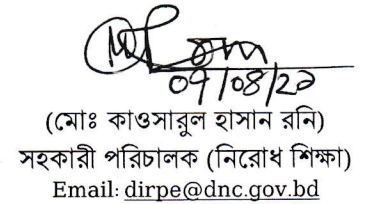 ০৭/০৪/২১
(মোঃ কাওসারুল হাসান রনি)
সহকারী পরিচালক (নিরোধ শিক্ষা)
Email: dirpe@dnc.gov.bd